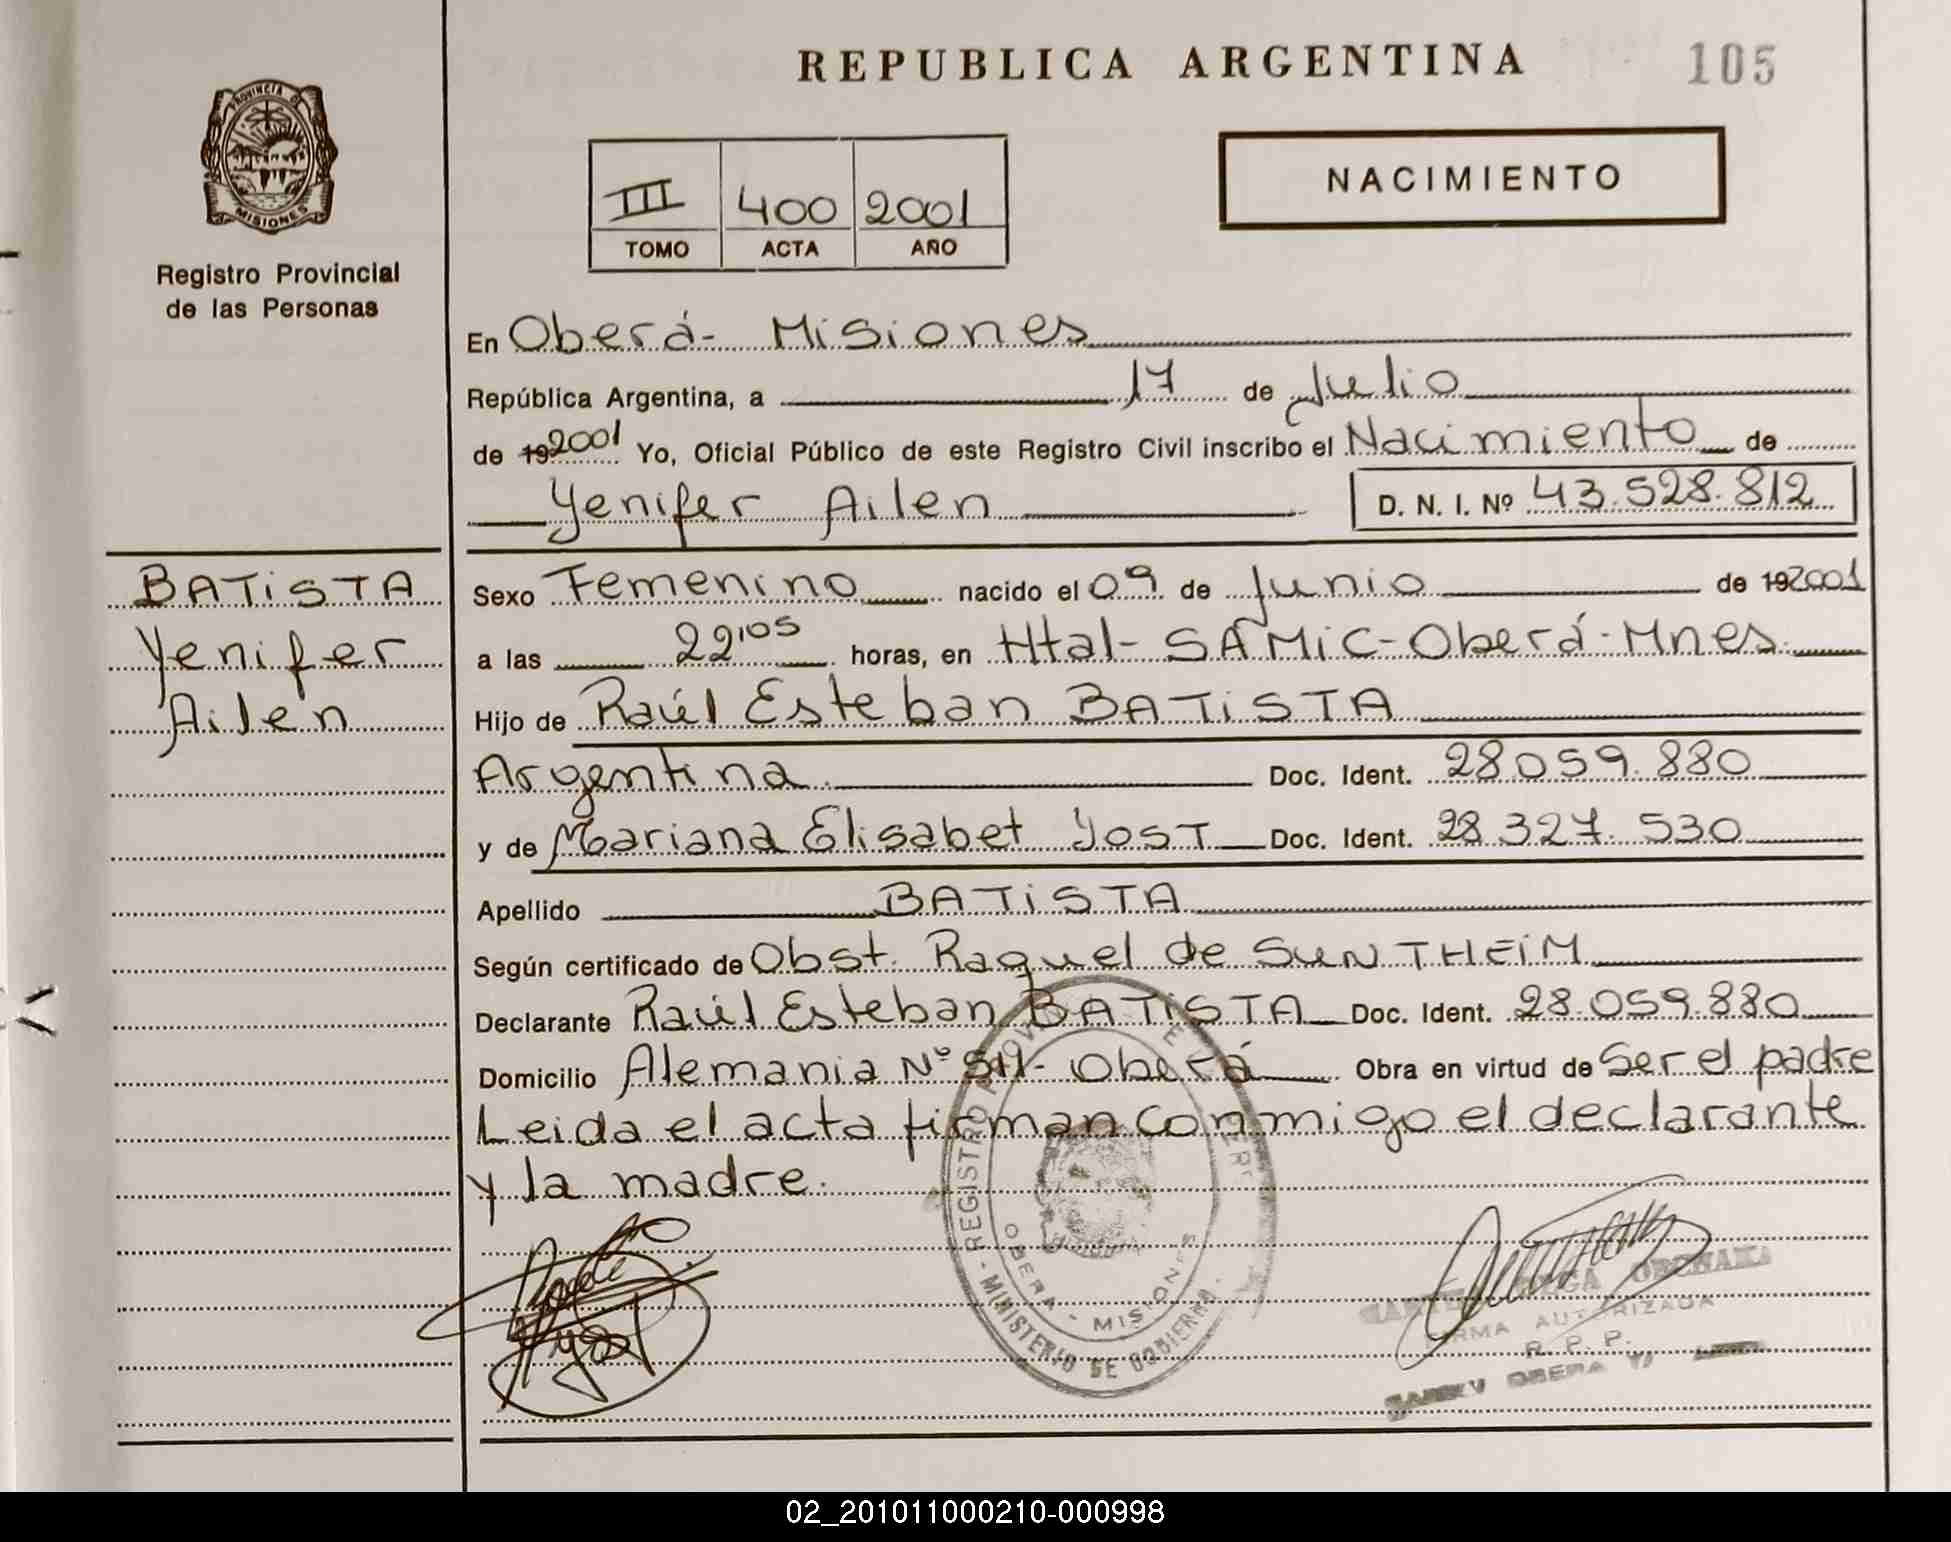 REPUBLICA ARGENTINA
105
PROVINCIA DE
MISIONES
Registro Provincial
de las Personas
III 400 2001
TOMO ACTA AÑO
NACIMIENTO
En Oberá- Misiones
República Argentina, a 17 de Julio
de 192001 Yo, Oficial Público de este Registro Civil inscribo el Nacimiento de
Yenifer Ailen D. N. I. Nº 43.528.812
BATiSTA
Yenifer
Ailen
Sexo Femenino nacido el 09 de Junio de 192001
a las 22'05 horas, en Htal- SAMiC-Oberá-Mnes.
Hijo de Raúl Esteban BATiSTA
Argentina. Doc. Ident. 28.059.880
y de Mariana Elisabet YOST Doc. Ident. 28.327.530
Apellido BATiSTA
Según certificado de Obst. Raquel de SUNTHEiM
Declarante Raúl Esteban BATiSTA Doc. Ident. 28.059.880
Domicilio Alemania Nº - Oberá Obra en virtud de Ser el padre
Leida el acta firman conmigo el declarante
y la madre.
REGISTRO
OBERA - MISIONES
- MINISTERIO DE GOBIERNO -
FIRMA AUTORIZADA
R. P. P.
OBERA
02_201011000210-000998